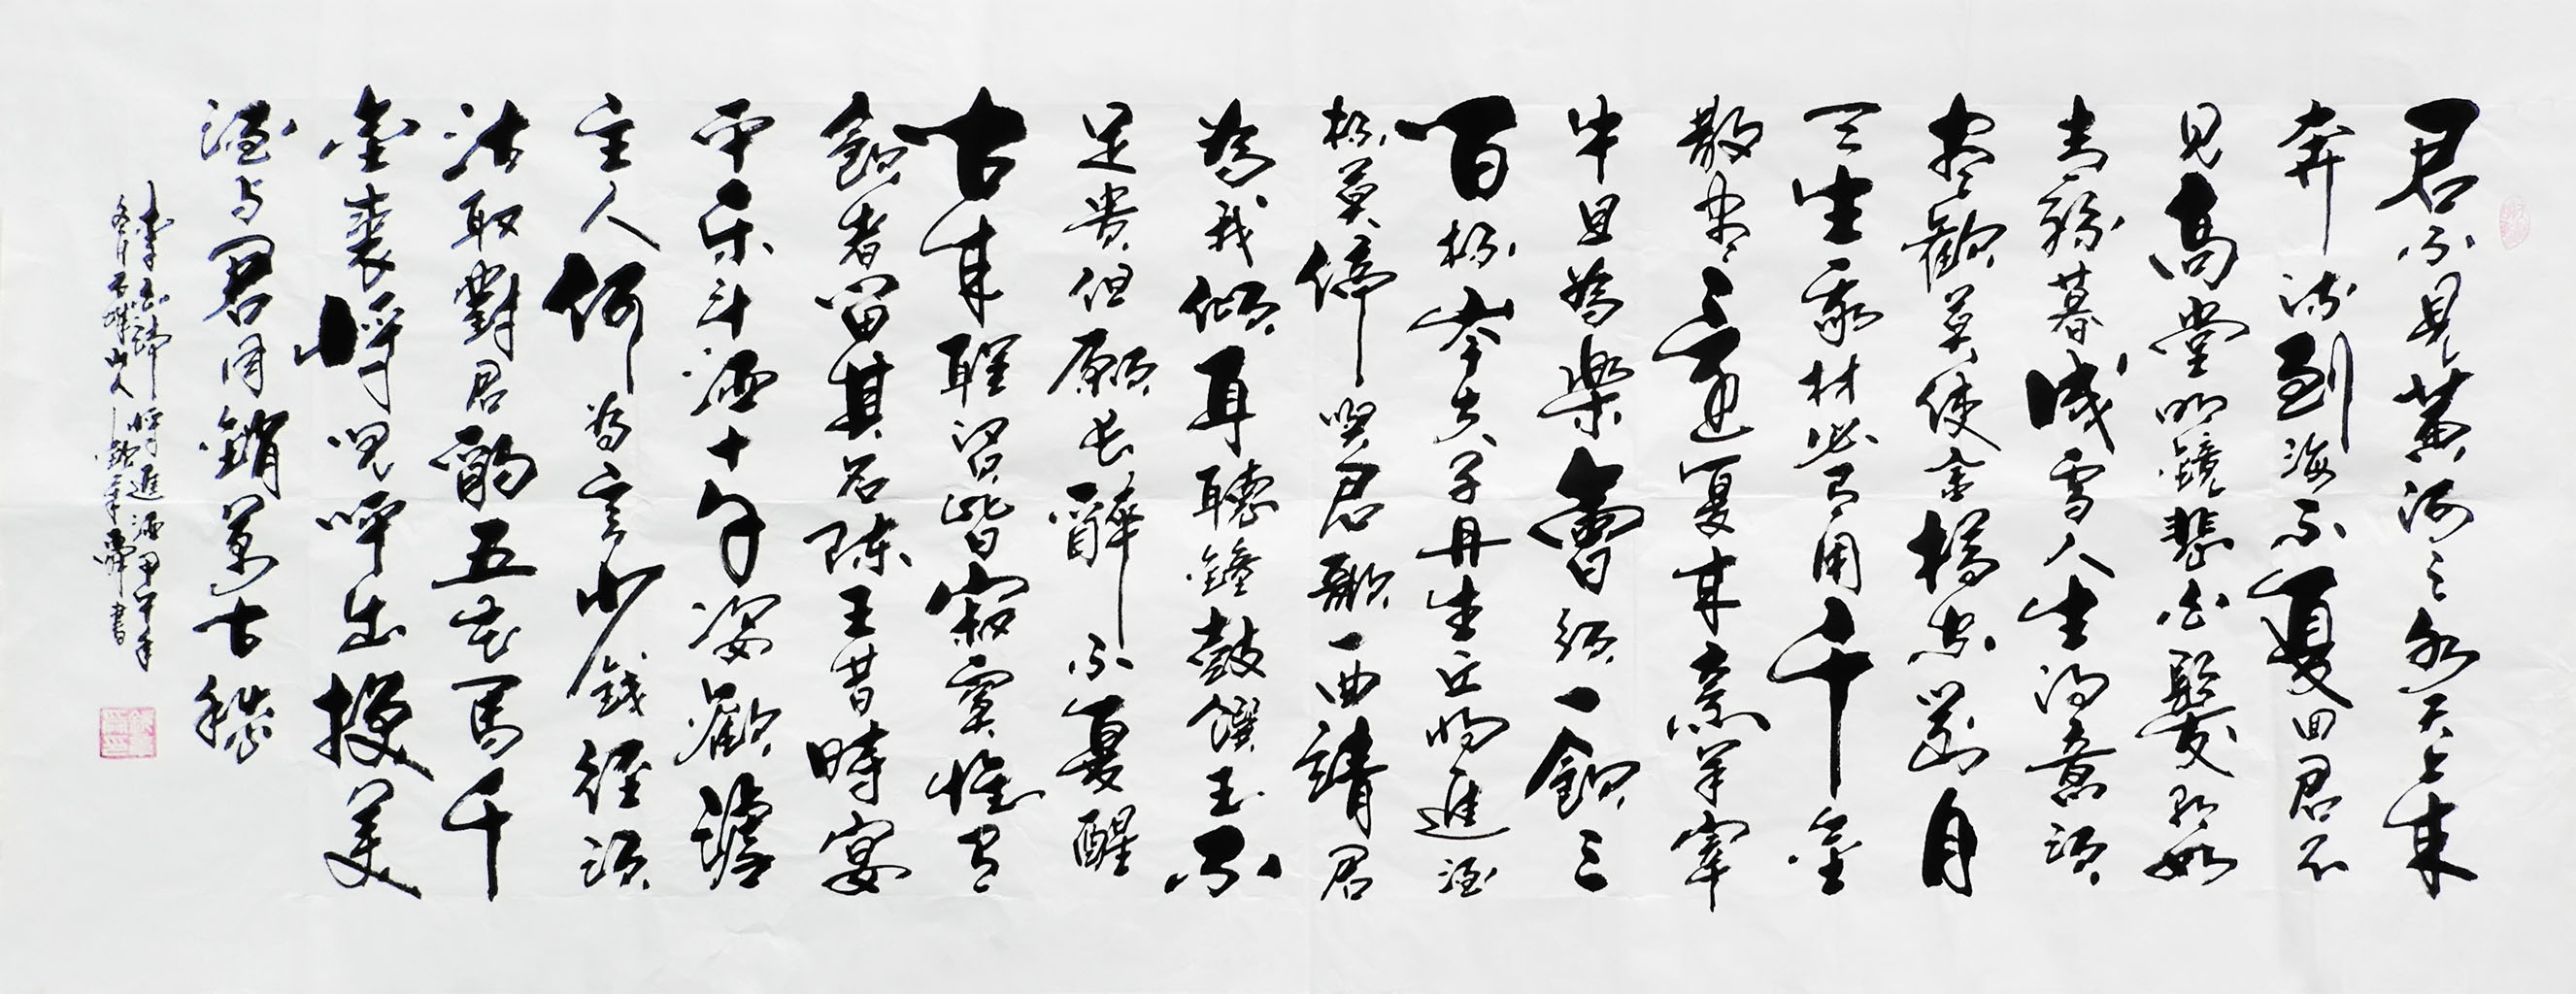 君不見黃河之水天上來
奔流到海不復回君不
見高堂明鏡悲白髮朝如
青絲暮成雪人生得意須
盡歡莫使金樽空對月
天生我材必有用千金
散盡還復來烹羊宰
牛且為樂會須一飲三
百杯岑夫子丹生丘將進酒
杯莫停與君歌一曲請君
為我傾耳聽鐘鼓饌玉不
足貴但願長醉不復醒
古來聖賢皆寂寞惟有
飲者留其名陳王昔時宴
平樂斗酒十千恣歡謔
主人何為言少錢徑須
沽取對君酌五花馬千
金裘呼兒呼出換美
酒與君同銷萬古愁
李白詩將進酒甲午年
冬月 山人 書